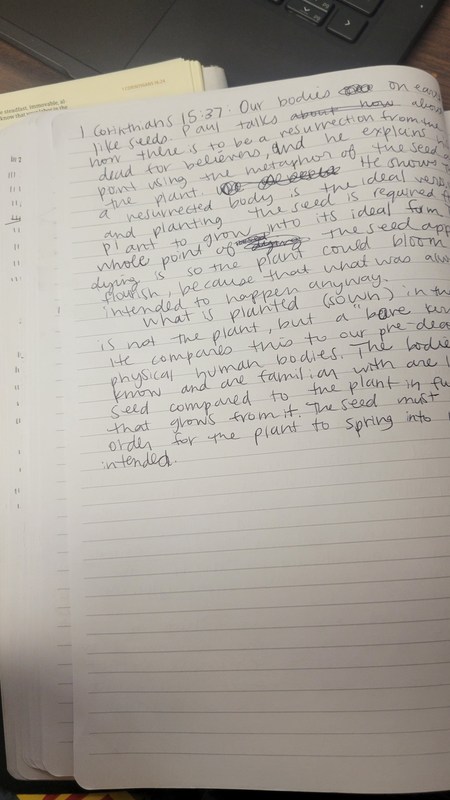 1 CORINTHIANS 15:29
steadfast, immovable, al
know that
1 Corinthians 15:37: Our bodies on ear
like seeds. Paul talks about how
how there is to be a resurrection from the
dead for believers, and he explains
point using the metaphor of the seed
the plant. He shows
a resurrected body is the ideal vers
and planting the seed is required f
plant to grow into its ideal form
whole point of the seed app
dying is so the plant could bloom
flourish, because that what was alw
intended to happen anyway.
What is planted (sown) in the
is not the plant, but a "bare ker
He compares this to our pre-dea
physical human bodies. The bodie
know and are familiar with are l
seed compared to the plant in fu
that grows from it. The seed must
order for the plant to spring into
intended.